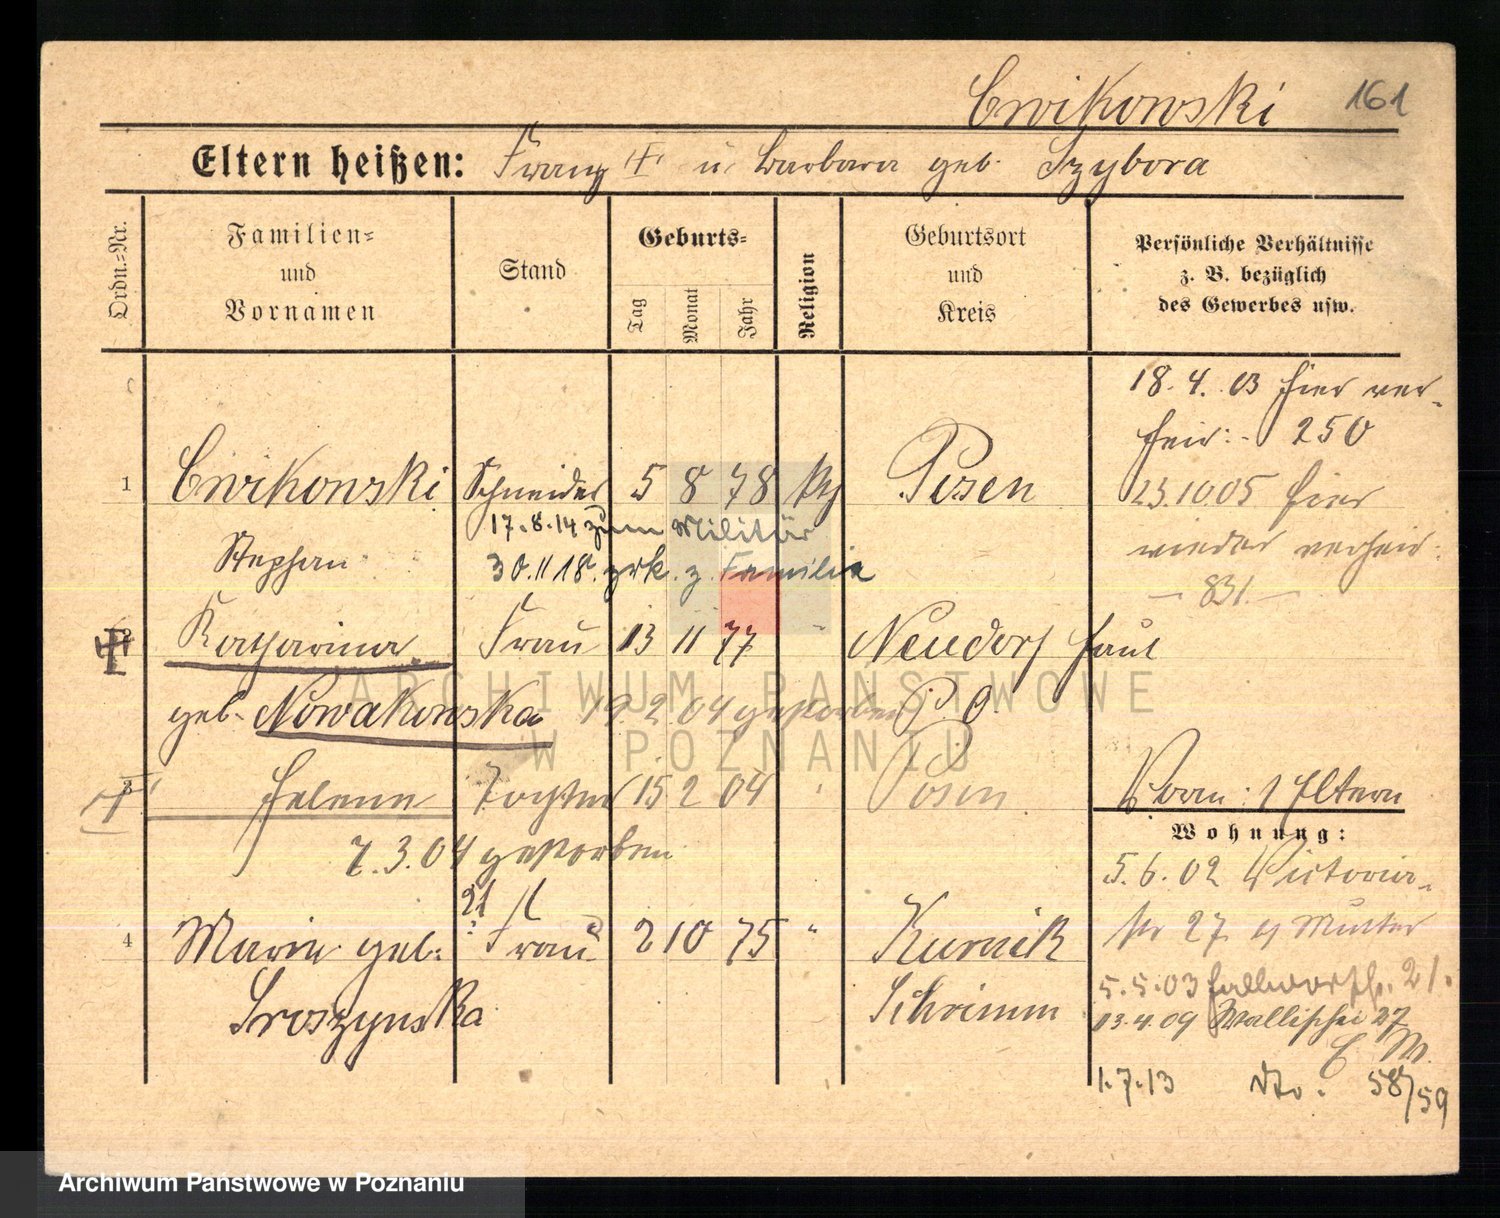 Cwikowski 161
Eltern heißen: Franz † u. Barbara geb. Szybora
Ordn.-Nr.
Familien-
und
Vornamen
Stand
Geburts-
Tag
Monat
Jahr
Religion
Geburtsort
und
Kreis
Persönliche Verhältnisse
z. B. bezüglich
des Gewerbes usw.
18. 4. 03 hier ver-
heir: 250
1 Cwikowski Schneider 5 8 78 Posen
23.10.05 hier
17.8.14 zum Militär
wieder verheir:
Stephan
30.11 18. zrk. z. Familie
— 831 —
2 Katharina Frau 13 11 77 " Neudorf Haul
geb. Nowakowska 19. 2. 04 gestorben P. O.
3 Helene Tochter 15 2 04 " Posen
7. 3. 04 gestorben
Vorm: 1 Eltern
Wohnung:
5. 6. 02 Victoria-
str 27 Mutter
4 Marie geb: Frau 2 10 75 " Kurnik
Sroszynska Schrimm
5. 5. 03 21.
13.4.09 Wallischei 27
1.7.13 58/59
ARCHIWUM PAŃSTWOWE
W POZNANIU
Archiwum Państwowe w Poznaniu